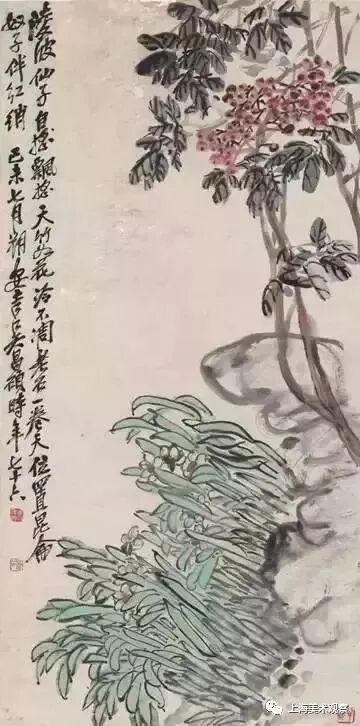 凌波仙子自搖飄搖天竹如花洽不凋老石一拳天位置昆侖
奴子伴紅綃 己未七月朔安吉吳昌碩時年七十六
上海美术观察